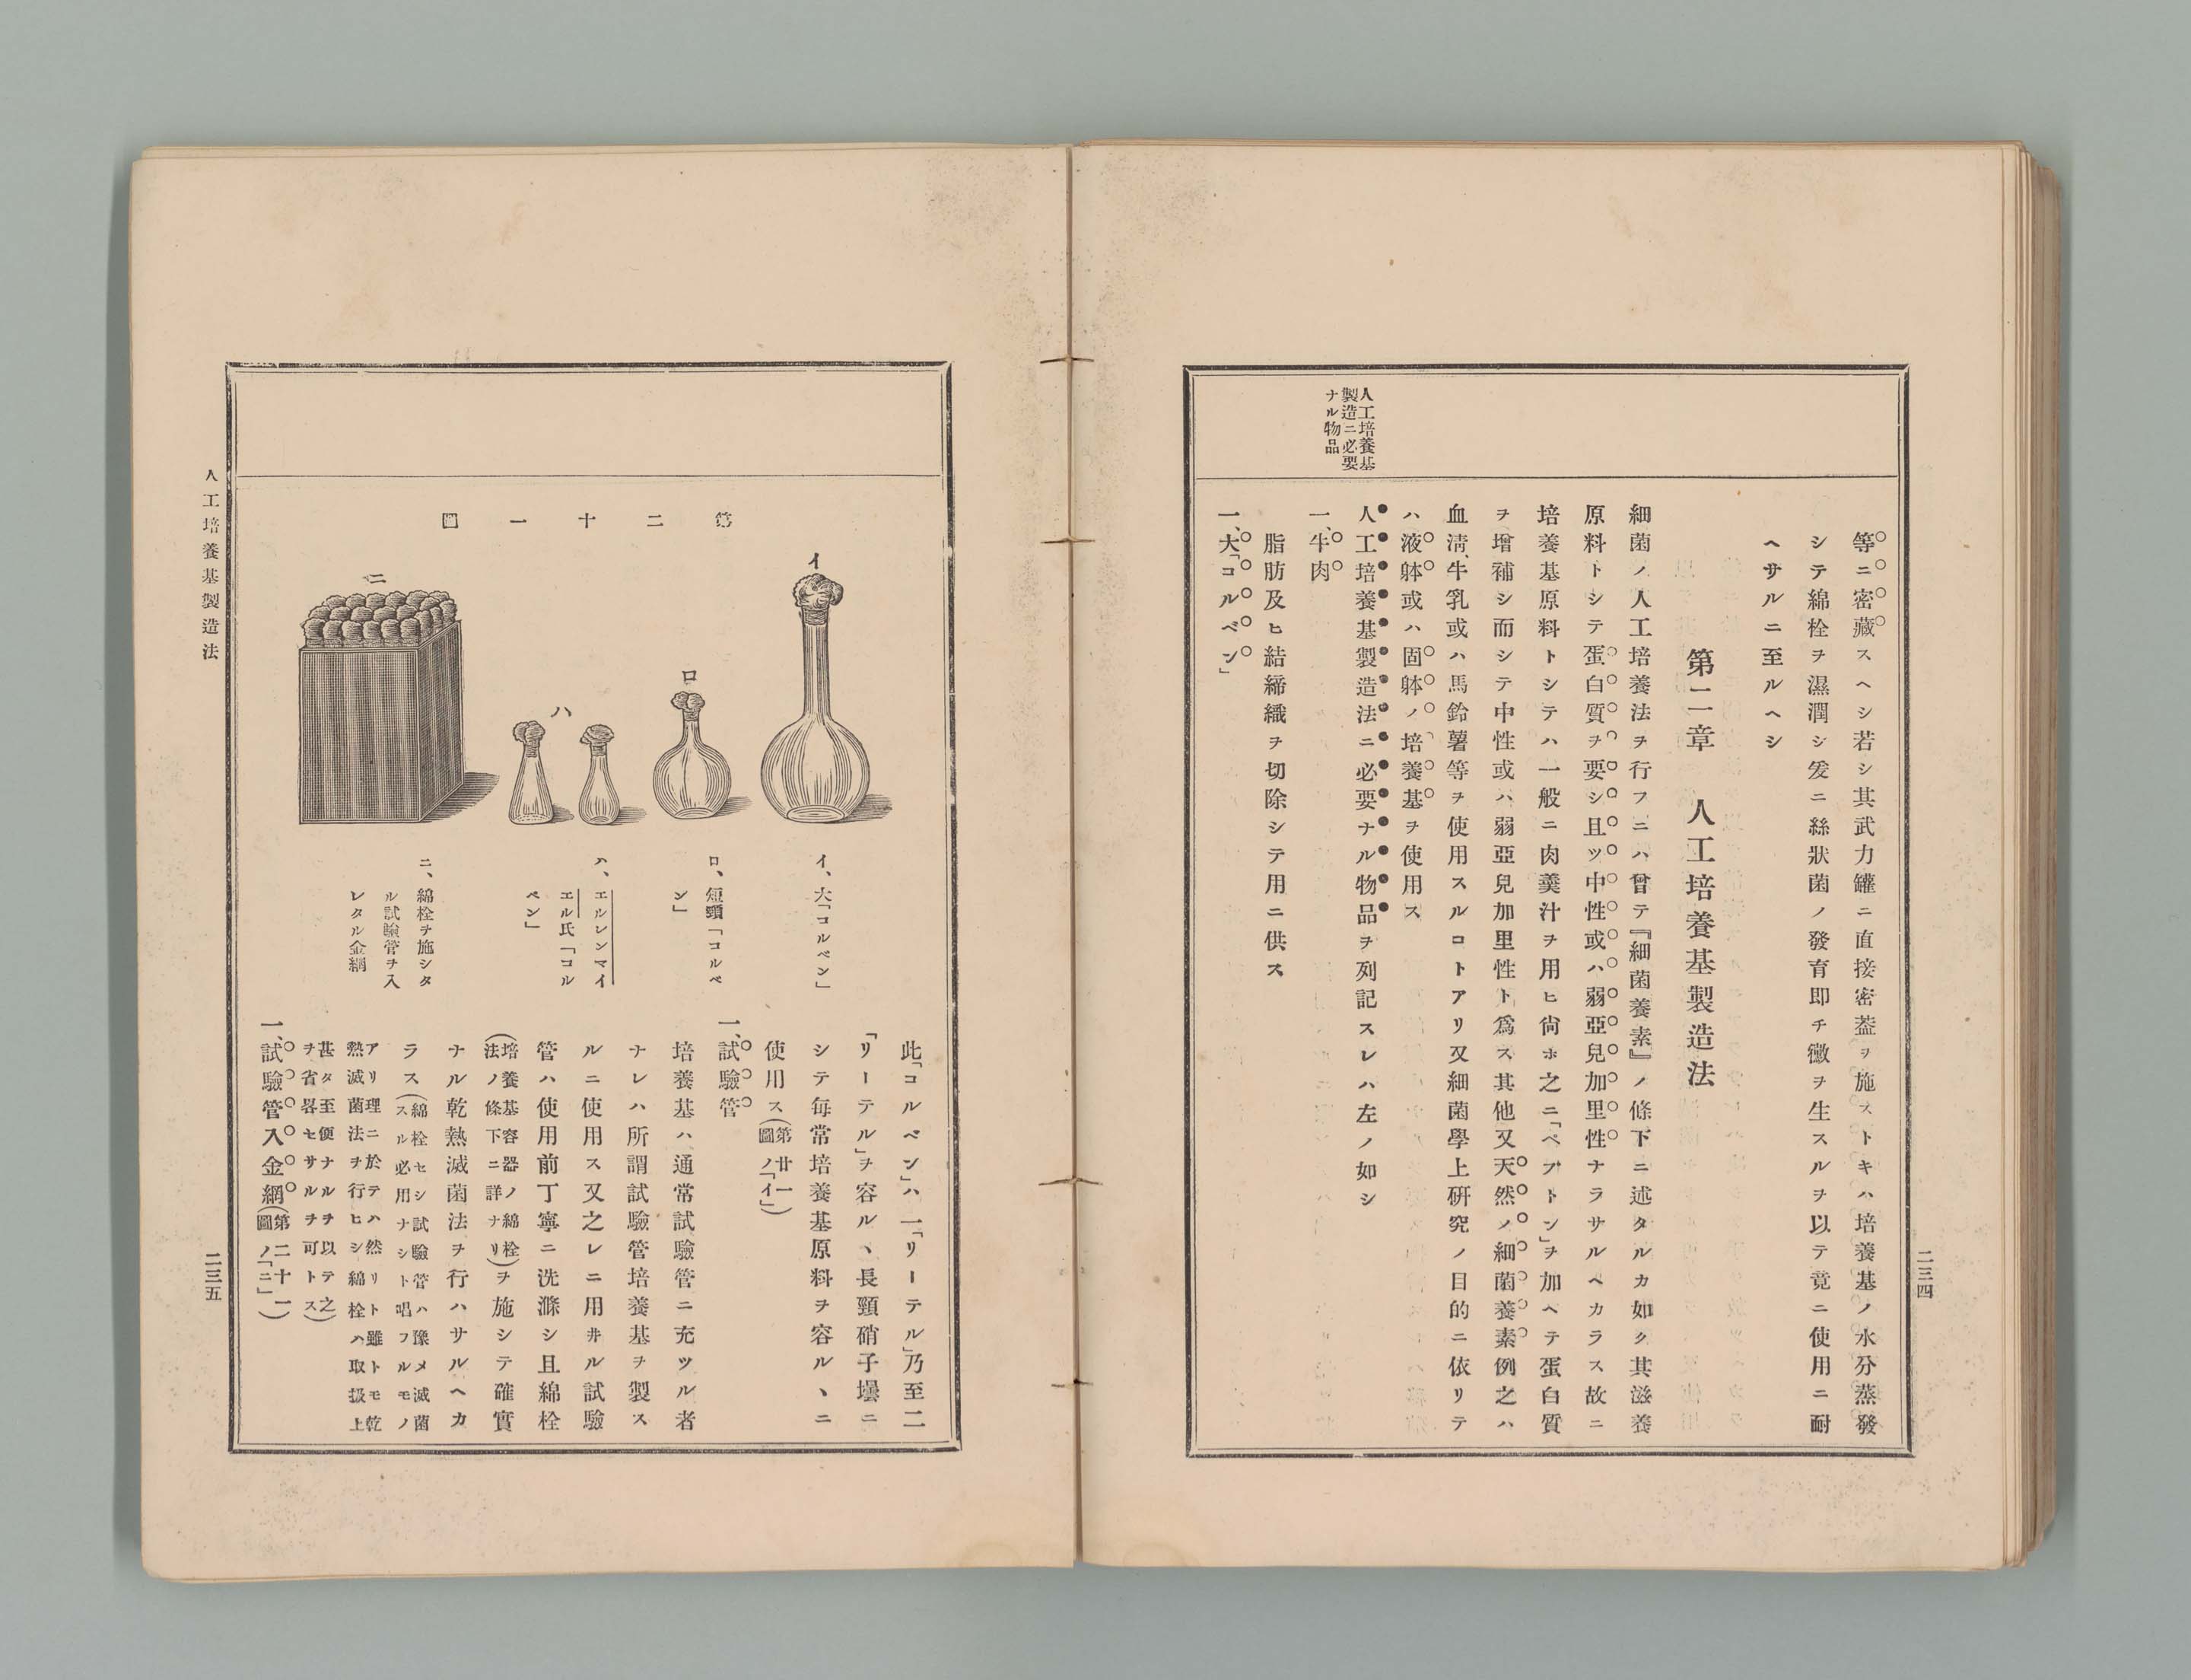 二三四
人工培養基
製造ニ必要
ナル物品
等ニ密藏スヘシ若シ其武力罐ニ直接密葢ヲ施ストキハ培養基ノ水分蒸發
シテ綿栓ヲ濕潤シ爰ニ絲狀菌ノ發育即チ黴ヲ生スルヲ以テ竟ニ使用ニ耐
ヘサルニ至ルヘシ
第二章　人工培養基製造法
細菌ノ人工培養法ヲ行フニハ曾テ『細菌養素』ノ條下ニ述タルカ如ク其滋養
原料トシテ蛋白質ヲ要シ且ツ中性或ハ弱亞兒加里性ナラサルヘカラス故ニ
培養基原料トシテハ一般ニ肉羹汁ヲ用ヒ尙ホ之ニ「ペプトン」ヲ加ヘテ蛋白質
ヲ增補シ而シテ中性或ハ弱亞兒加里性ト爲ス其他又天然ノ細菌養素例之ハ
血淸、牛乳或ハ馬鈴薯等ヲ使用スルコトアリ又細菌學上硏究ノ目的ニ依リテ
ハ液躰或ハ固躰ノ培養基ヲ使用ス
人工培養基製造法ニ必要ナル物品ヲ列記スレハ左ノ如シ
一、牛肉
脂肪及ヒ結締織ヲ切除シテ用ニ供ス
一、大「コルベン」
第二十一圖
イ
ロ
ハ
ニ
イ、大「コルベン」
ロ、短頸「コルベ
ン」
ハ、エルレンマイ
エル氏「コル
ベン」
ニ、綿栓ヲ施シタ
ル試驗管ヲ入
レタル金綱
此「コルベン」ハ一「リーテル」乃至二
「リーテル」ヲ容ルヽ長頸硝子壜ニ
シテ每常培養基原料ヲ容ルヽニ
使用ス(第廿一圖ノ「イ」)
一、試驗管
培養基ハ通常試驗管ニ充ツル者
ナレハ所謂試驗管培養基ヲ製ス
ルニ使用ス又之レニ用井ル試驗
管ハ使用前丁寧ニ洗滌シ且綿栓
(培養基容器ノ綿栓法ノ條下ニ詳ナリ)ヲ施シテ確實
ナル乾熱滅菌法ヲ行ハサルヘカ
ラス(綿栓セシ試驗管ハ豫メ滅菌スル必用ナシト唱フルモノ
アリ理ニ於テハ然リト雖トモ乾
熱滅菌法ヲ行ヒシ綿栓ハ取扱上
甚タ至便ナルヲ以テ之
ヲ省畧セサルヲ可トス)
一、試驗管入金綱(第二十一圖ノ「ニ」)
人工培養基製造法
二三五